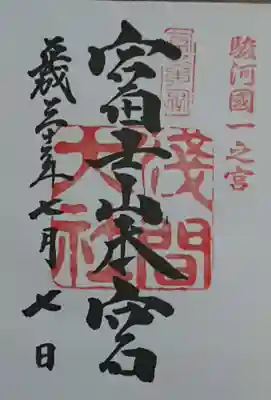 駿河國一之宮
富士山本宮
淺間
大社
平成三十年七月七日